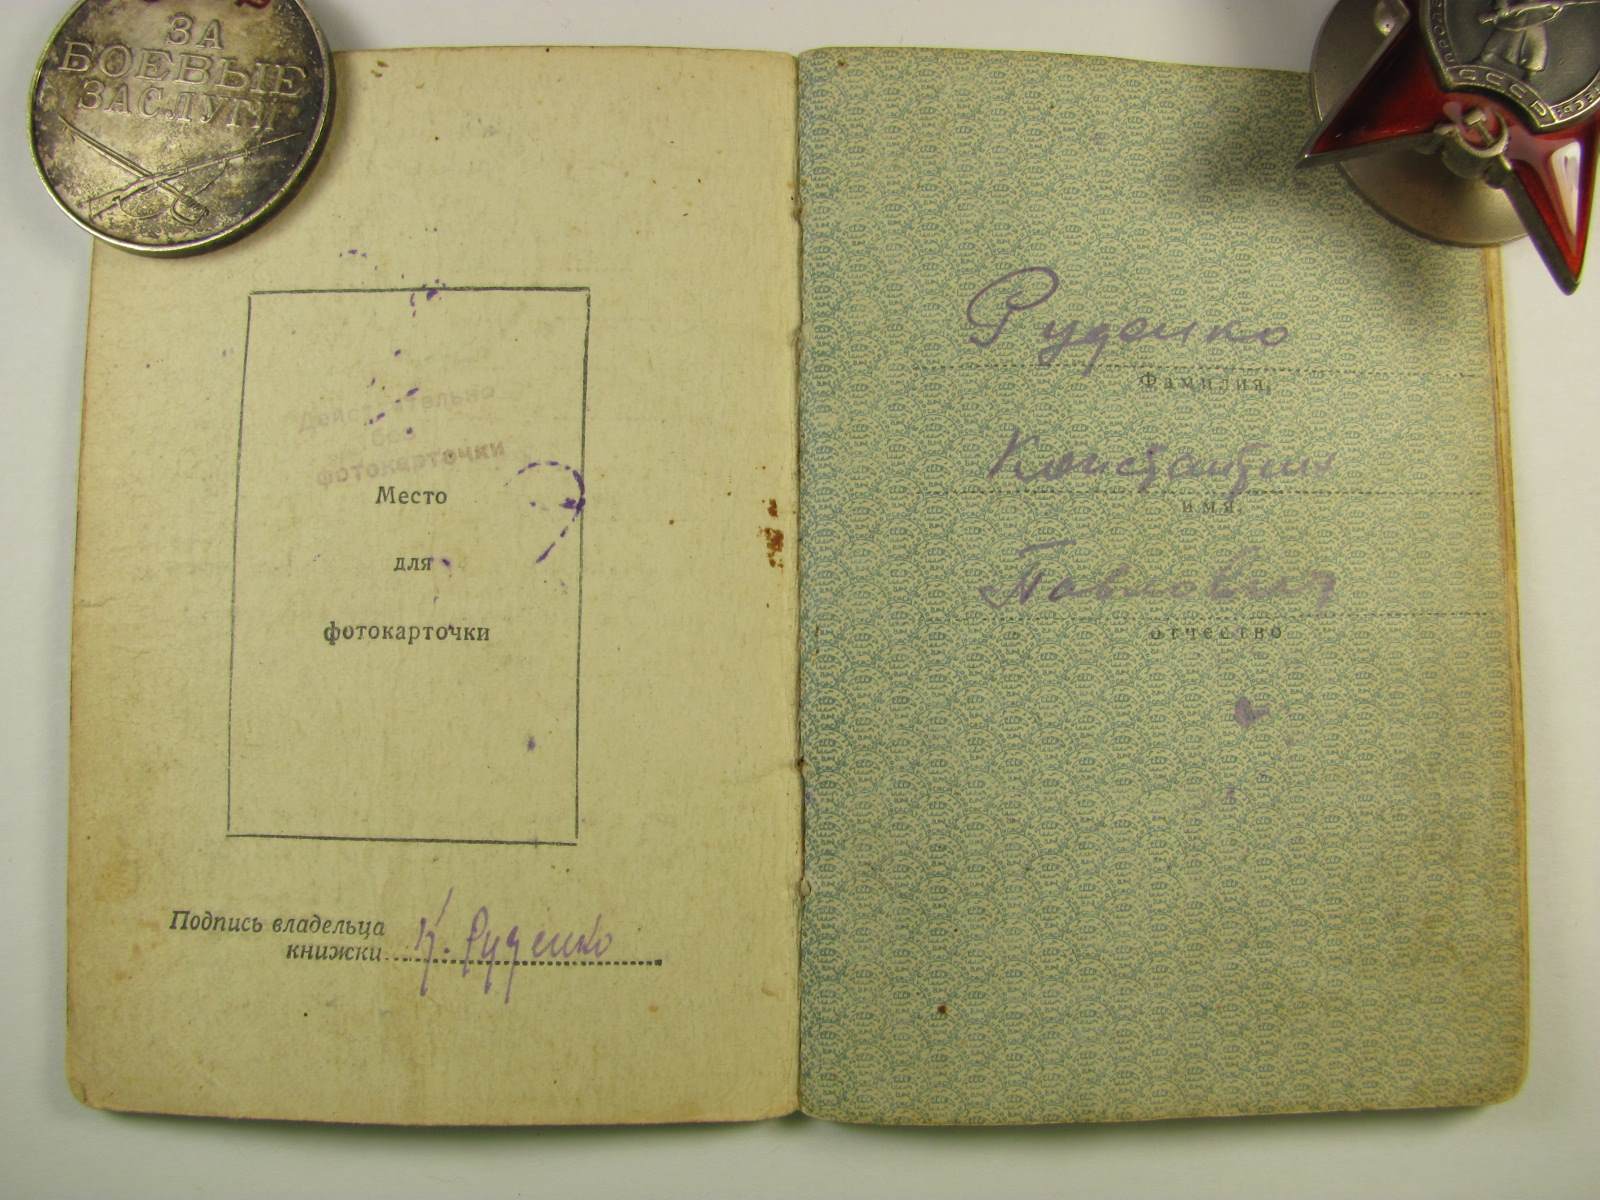 ЗА
БОЕВЫЕ
ЗАСЛУГИ
Действительно
без
фотокарточки
Место
для
фотокарточки
Подпись владельца
книжки К. Руденко
Руденко
Фамилия,
Константин
имя,
Павлович
отчество
СССР